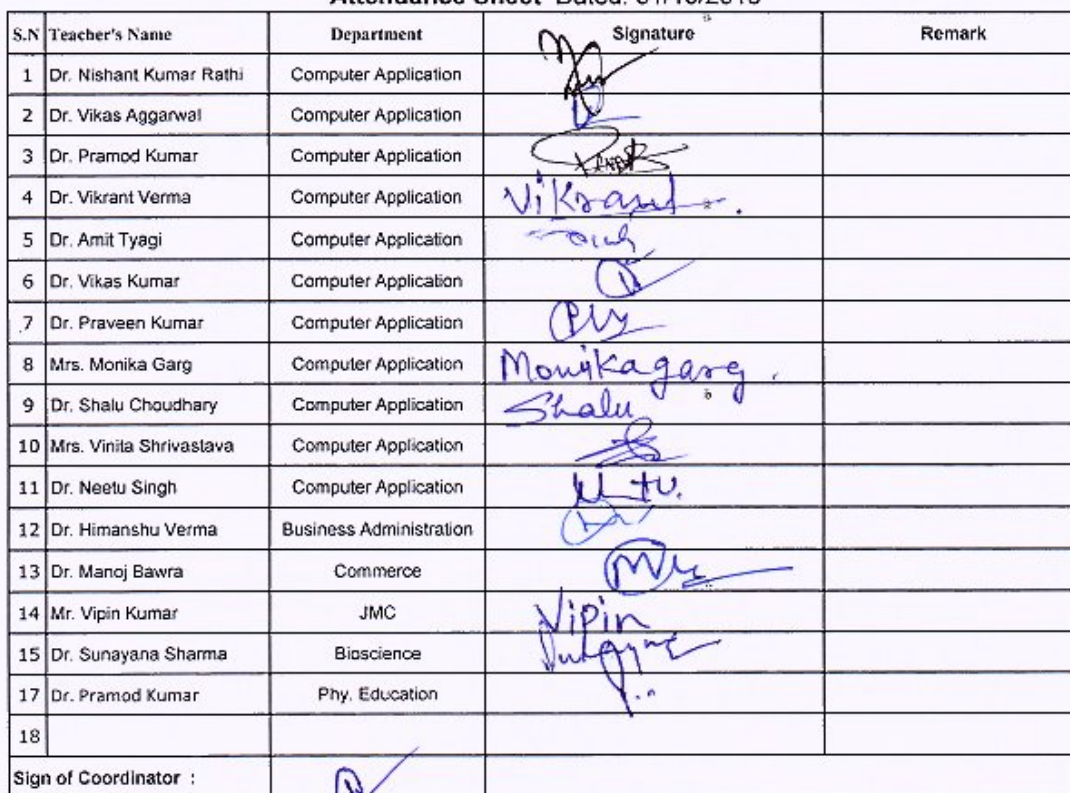 Attendance Sheet Dated:
S.N Teacher's Name Department Signature Remark
1 Dr. Nishant Kumar Rathi Computer Application
2 Dr. Vikas Aggarwal Computer Application
3 Dr. Pramod Kumar Computer Application
4 Dr. Vikrant Verma Computer Application Vikrant
5 Dr. Amit Tyagi Computer Application
6 Dr. Vikas Kumar Computer Application
7 Dr. Praveen Kumar Computer Application
8 Mrs. Monika Garg Computer Application Monika garg.
9 Dr. Shalu Choudhary Computer Application Shalu
10 Mrs. Vinita Shrivastava Computer Application
11 Dr. Neetu Singh Computer Application
12 Dr. Himanshu Verma Business Administration
13 Dr. Manoj Bawra Commerce
14 Mr. Vipin Kumar JMC Vipin
15 Dr. Sunayana Sharma Bioscience
17 Dr. Pramod Kumar Phy. Education
18
Sign of Coordinator :